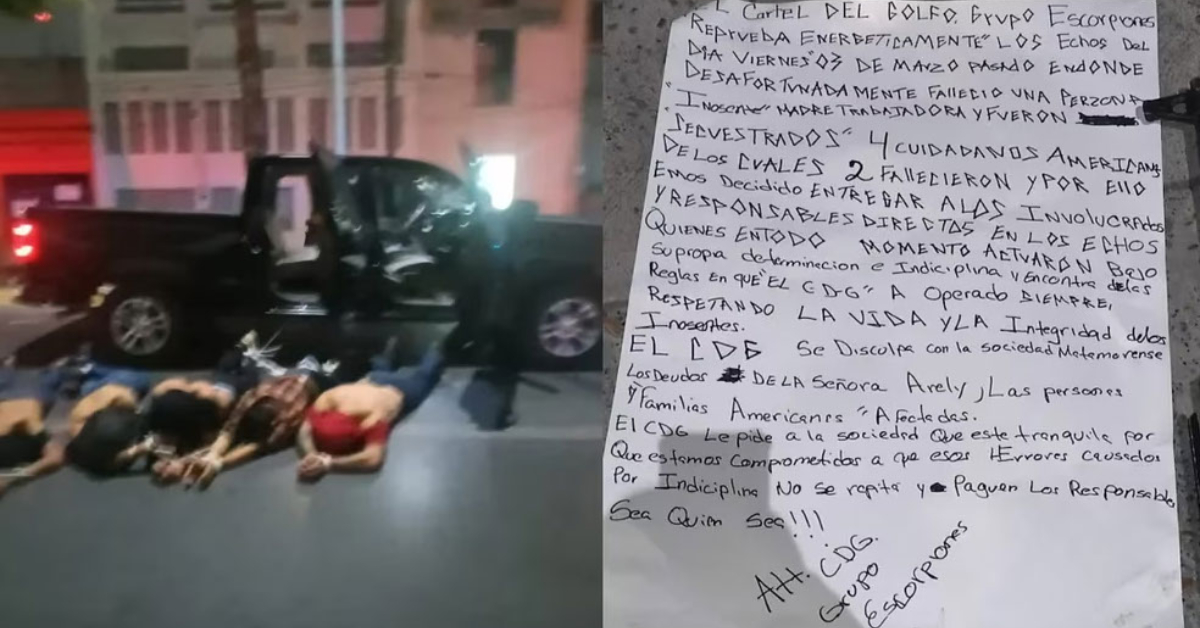 EL Cartel DEL GOLFO. Grupo Escorpiones
REPRUEBA ENERGETICAMENTE" LOS Echos DEL
DIA VIERNES" 03 DE MARZO PASADO ENDONDE
DESAFORTUNADAMENTE FALLECIO UNA PERZONA
"INOSENTE" MADRE TRABAJADORA Y FUERON
SECUESTRADOS" 4 CUIDADANOS AMERICANS
DE LOS CUALES 2 FALLECIERON Y POR ELLO
EMOS DECIDIDO ENTREGAR A LOS INVOLUCRADOS
Y RESPONSABLES DIRECTOS EN LOS ECHOS
QUIENES ENTODO MOMENTO ACTUARÓN BAJO
su propia determinacion e Indiciplina y encontra delas
Reglas En que "EL CDG" A Operado SIEMPRE,
RESPETANDO LA VIDA Y LA Integridad delos
Inosentes.
EL CDG Se Disculpa con la sociedad Matamorense
Los Deudos DE LA Señora Arely, Las personas
Y Familias Americanas "Afectadas.
El CDG Le pide a la sociedad Que este tranquila por
Que estamos Comprometidos a que esos Errores Causados
Por Indiciplina No se repita y Paguen Los Responsable
Sea Quien Sea!!!
Att. CDG.
Grupo
Escorpiones